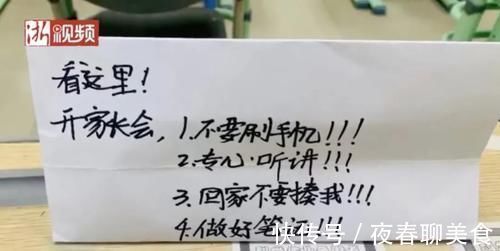 浙视频
看这里!
开家长会,1.不要刷手机!!!
2.专心听讲!!!
3.回家不要揍我!!!
4.做好笔记!!!
快传号/夜春聊美食